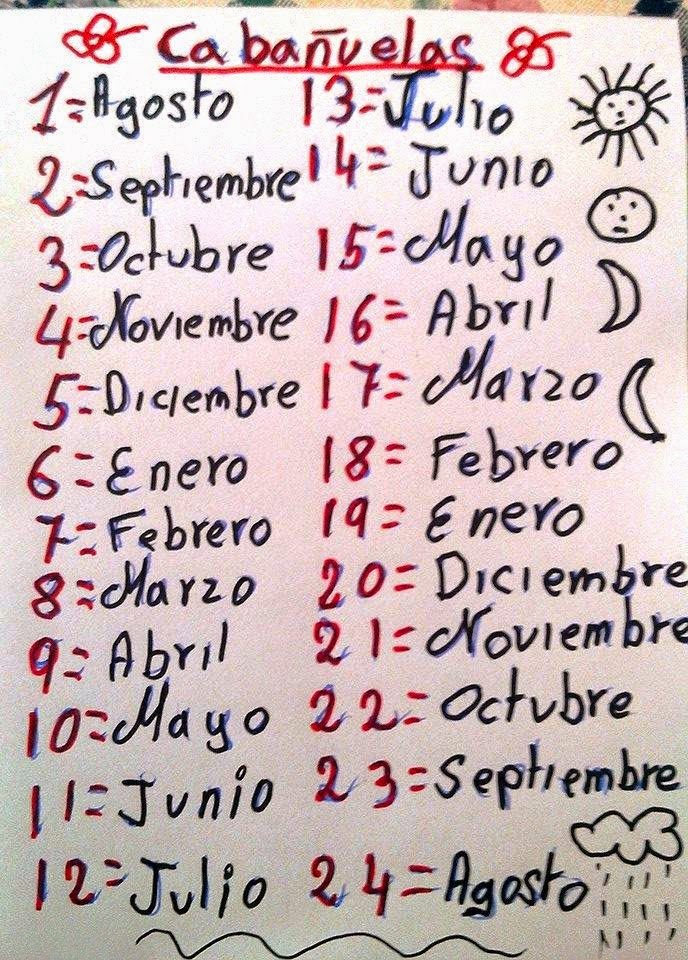 Cabañuelas
1=Agosto
2=Septiembre
3=Octubre
4=Noviembre
5=Diciembre
6=Enero
7=Febrero
8=Marzo
9=Abril
10=Mayo
11=Junio
12=Julio
13=Julio
14=Junio
15=Mayo
16=Abril
17=Marzo
18=Febrero
19=Enero
20=Diciembre
21=Noviembre
22=Octubre
23=Septiembre
24=Agosto